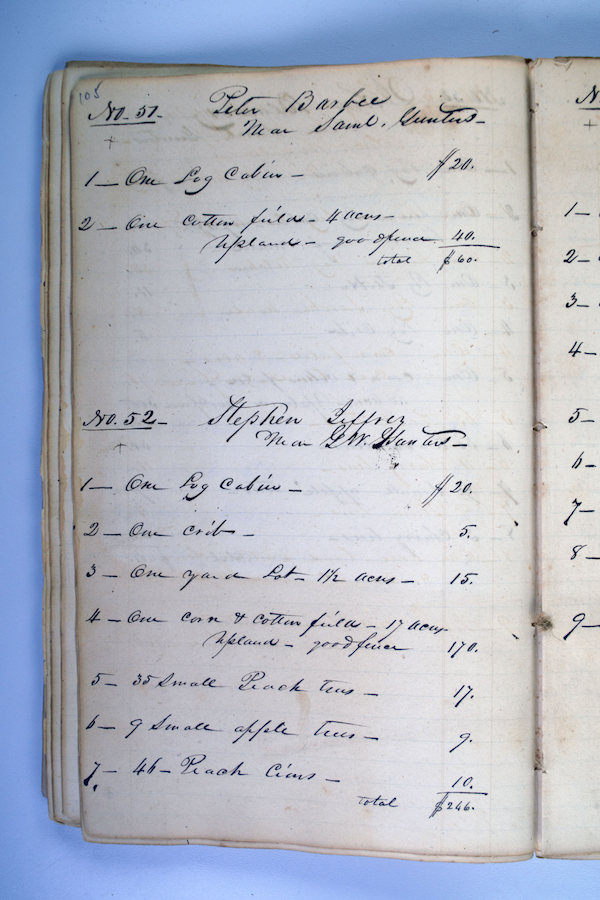 105
No. 51- Peter Barbee
Near Saml. Gunters-
+
1- One Log Cabin - $20.
2- One cotton field - 4 acres-
Upland - good fence 40.
total $60.
No. 52- Stephen
Near G.W. Gunters-
+
1- One Log Cabin - $20.
2- One crib- 5.
3- One yard Lot- 1½ acres- 15.
4- One corn & cotton field - 17 acres
Upland - good fence 170.
5- 35 Small Peach trees - 17.
6- 9 Small apple trees - 9.
7- 46- Peach Cions - 10.
total $246.
N
+
1-
2-
3-
4-
5-
6-
7-
8-
9-